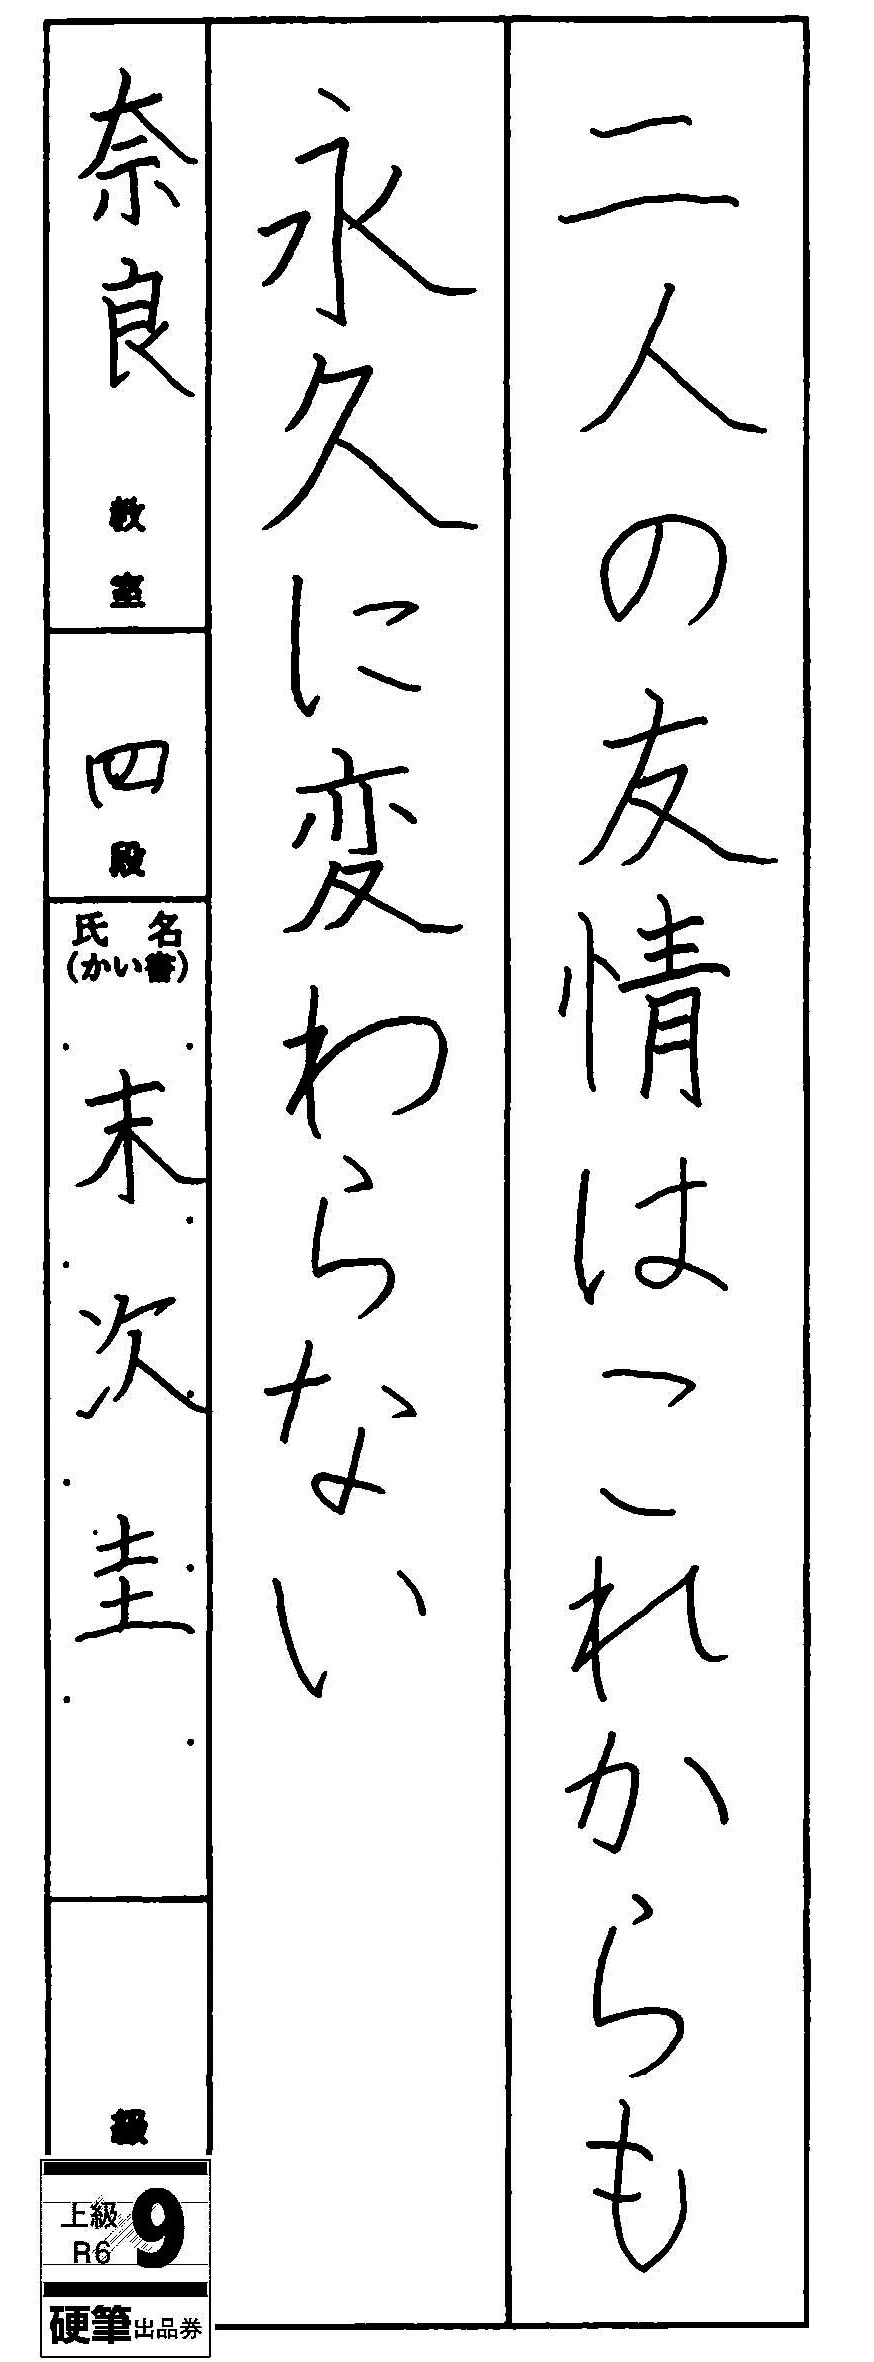 二人の友情はこれからも
永久に変わらない
奈良教室
四段
氏名
(かい書)
末次圭
級
上級
R6
9
硬筆出品券